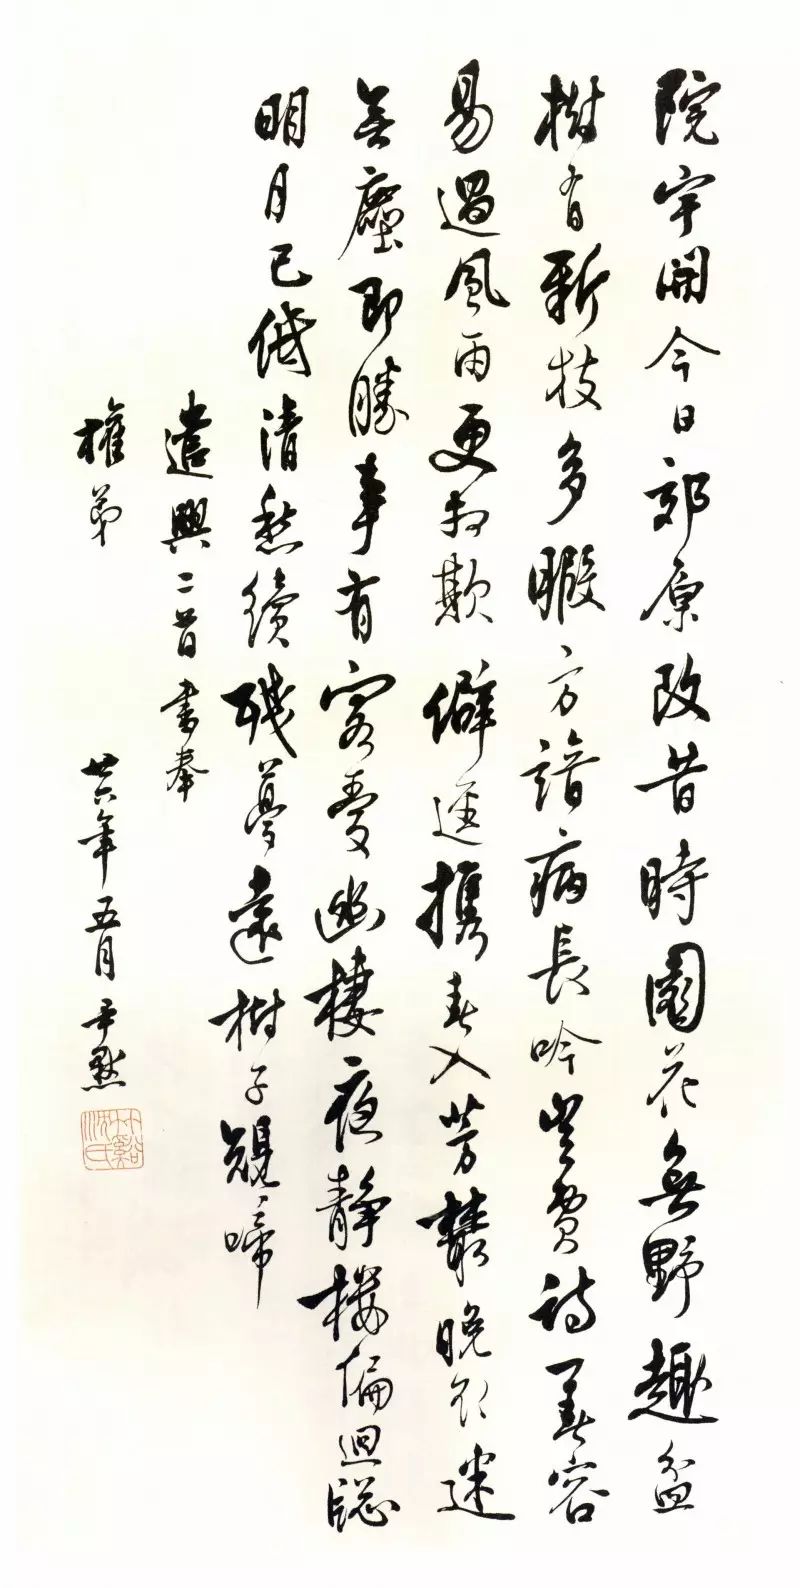 院宇開今日郊原改昔時園花無野趣盆
樹有新枝多暇方諳病長吟豈費詩春容
易過風雨更相欺僻逕攜春入芳叢晚欲迷
無塵即勝事有客愛幽棲夜静樓偏迥牕
明月已低清愁續殘夢遠樹子規啼
遣興二首書奉
權弟 廿六年五月尹默
竹谿沈氏